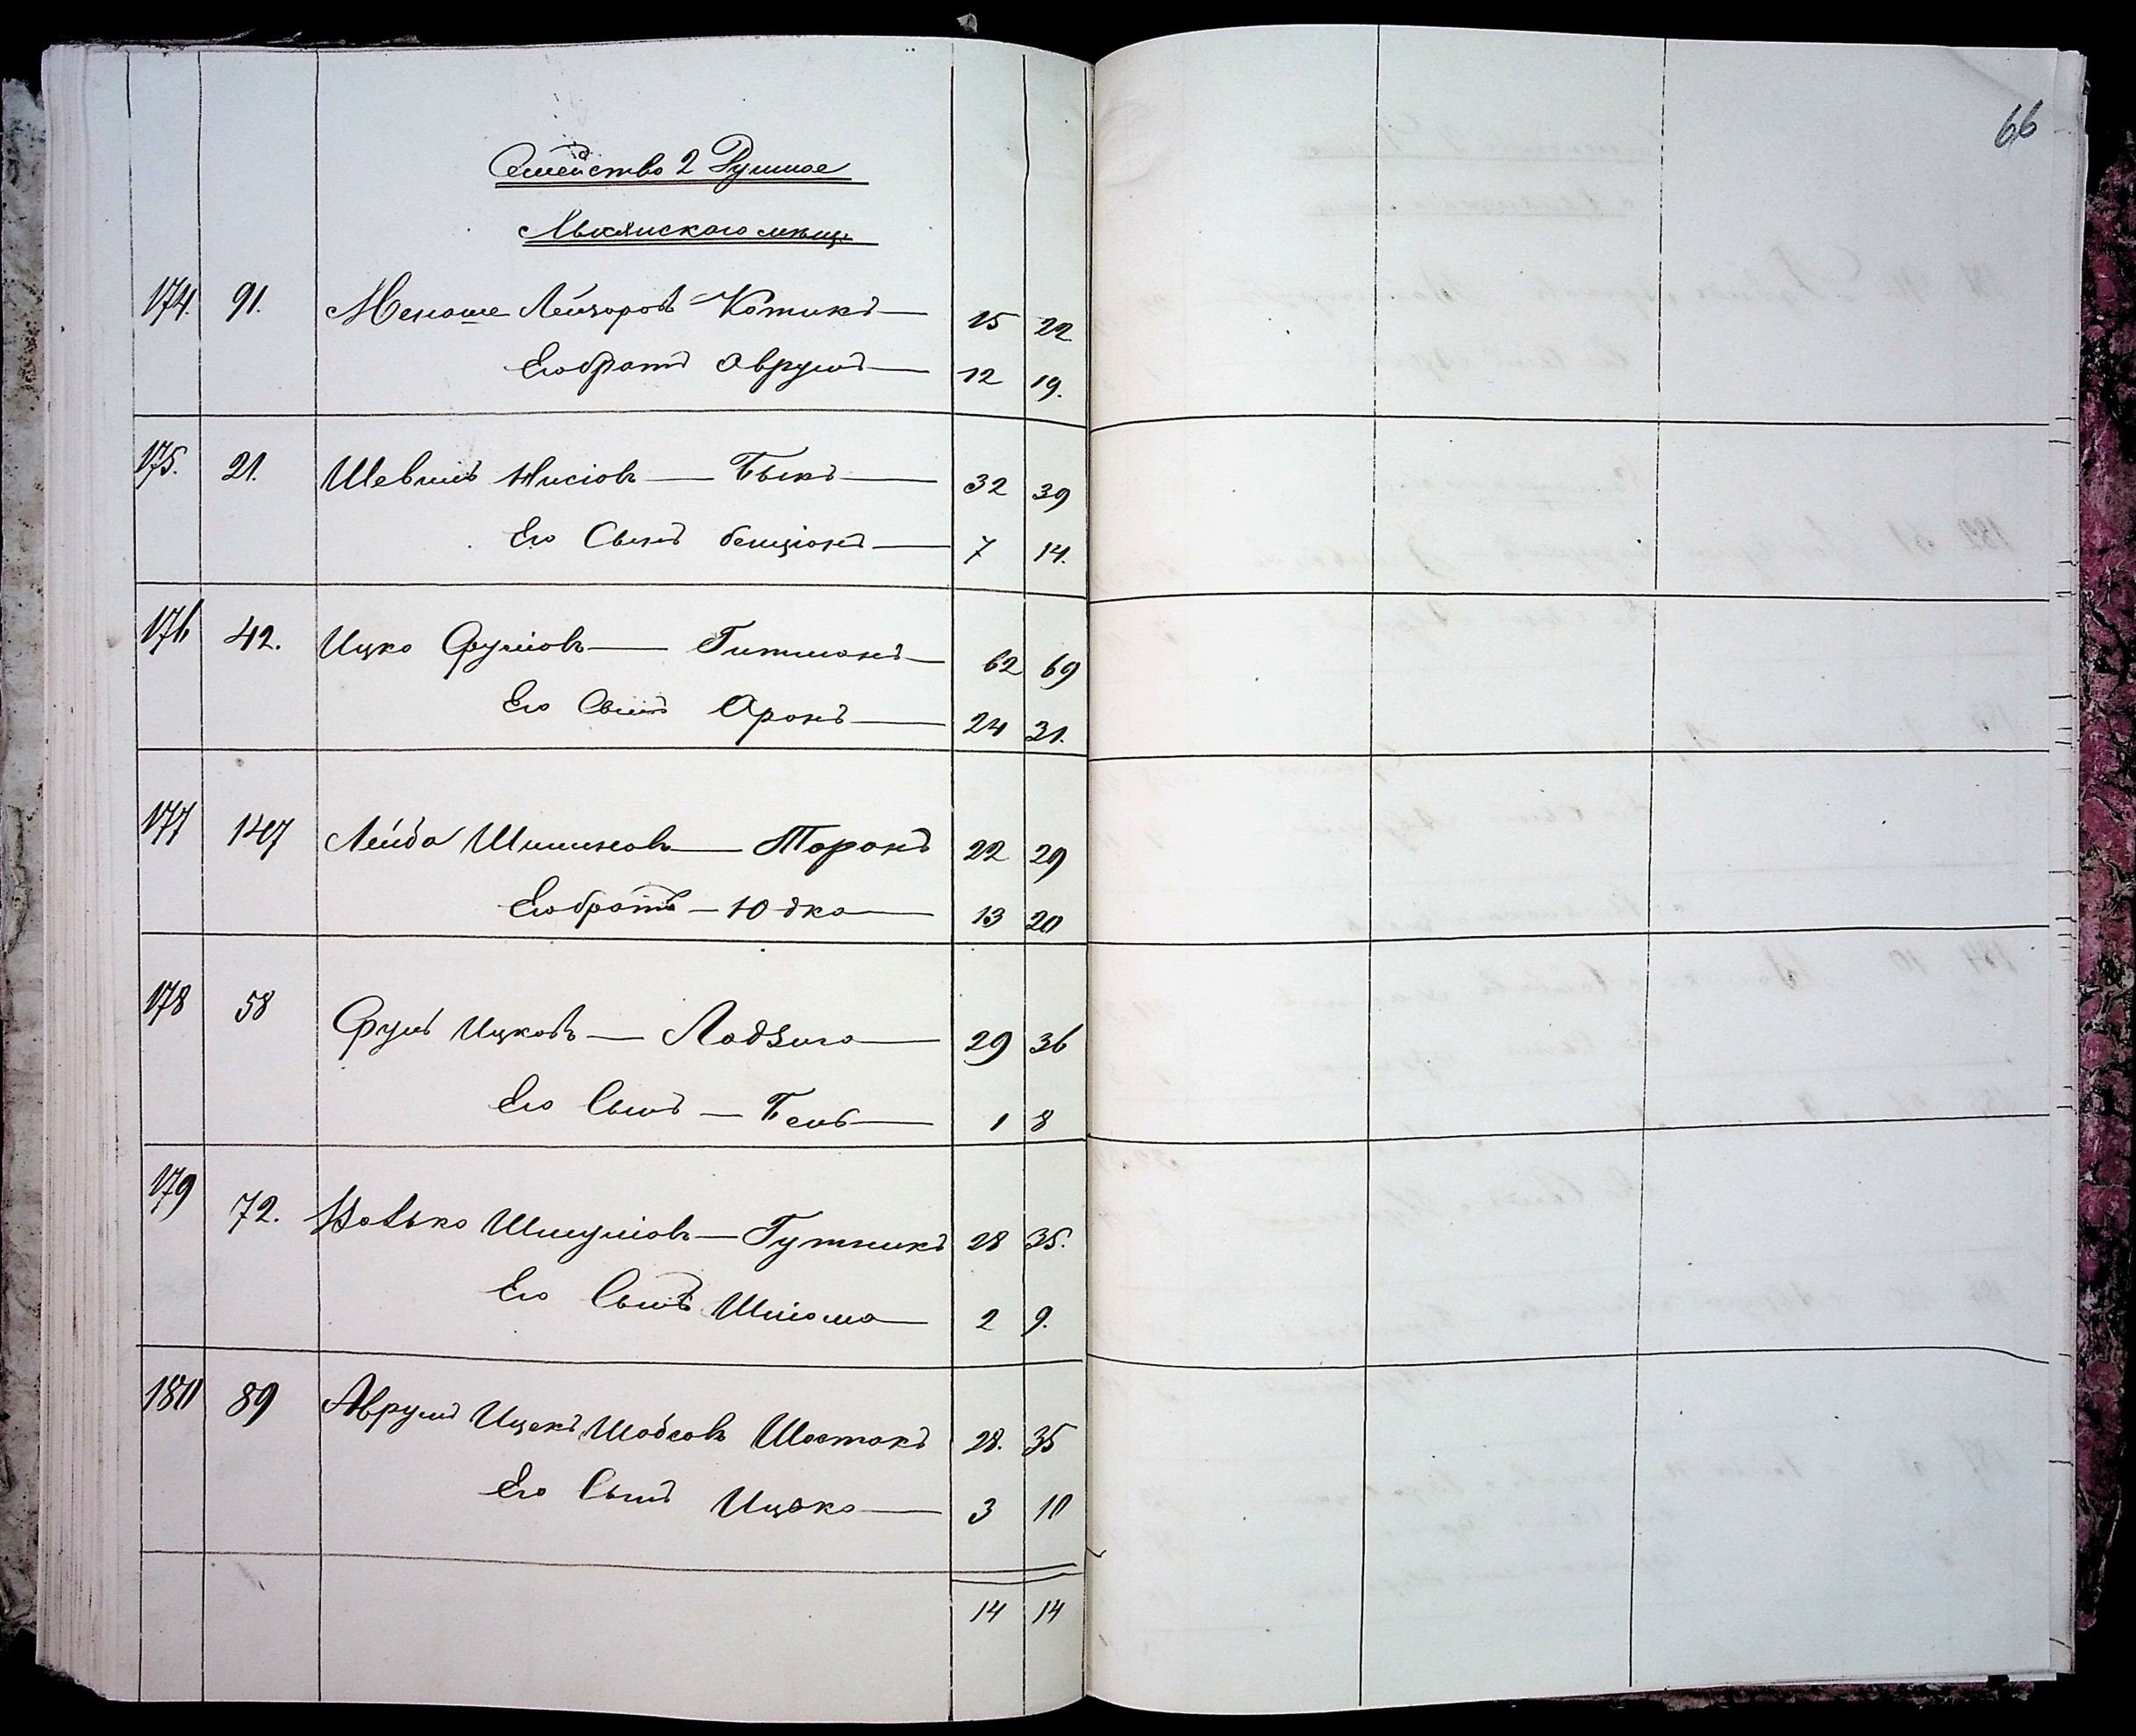 66
Семейство 2 Душное
Лысянского мѣщ.
174. 91. Менаше Лейзоровъ Котикъ — 15 22.
Его братъ Аврумъ — 12 19.
175. 21. Шевшиъ Нисіовъ — Быкъ — 32 39
Его Сынъ бенціонъ — 7 14.
176 42. Ицко Сруліовъ — Гитманъ — 62 69
Его Сынъ Аронъ — 24 31.
177 147 Лейба Шимоновъ — Таранъ 22 29
Его братъ — Юдко — 13 20
178 58 Сруль Ицковъ — Ладыга — 29 36
Его Сынъ — Бень — 1 8
179 72. Волько Шмуліовъ — Гутникъ 28 35.
Его Сынъ Шліома — 2 9.
180 89 Аврумъ Ицекъ Шабсовъ Шостакъ 28. 35
Его Сынъ Ицько — 3 10
14 14